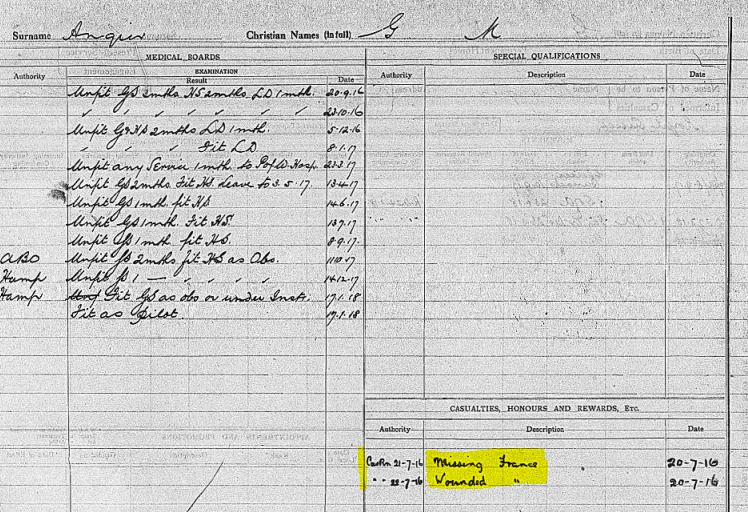 Surname Angier Christian Names (In full) G M
MEDICAL BOARDS
SPECIAL QUALIFICATIONS
Authority EXAMINATION Result Date
Authority Description Date
Unfit GS 2mths HS 2mths LD 1mth. 20.9.16
" " " " " " " 23.10.16
Unfit G&HS 2mths LD 1mth. 5.12.16
" " " " Fit LD 8.1.17
Unfit any Service 1mth. to Hosp 23.3.17
Unfit GS 2mths. Fit HS. Leave to 3.5.17. 13.4.17
Unfit GS 1mth. fit HS 14.6.17
Unfit GS 1mth. Fit HS. 13.7.17
Unfit GS 1mth. fit HS. 8.9.17.
Unfit GS 2mths fit HS as Obs. 1.10.17
Hamp Unfit GS 1 — " " " " 14.12.17
Hamp Fit GS as obs or under Instr. 17.1.18
Fit as Pilot. 19.1.18
CASUALTIES, HONOURS AND REWARDS, ETC.
Authority Description Date
21-7-16 Missing France 20-7-16
" " 22-7-16 Wounded " 20-7-16